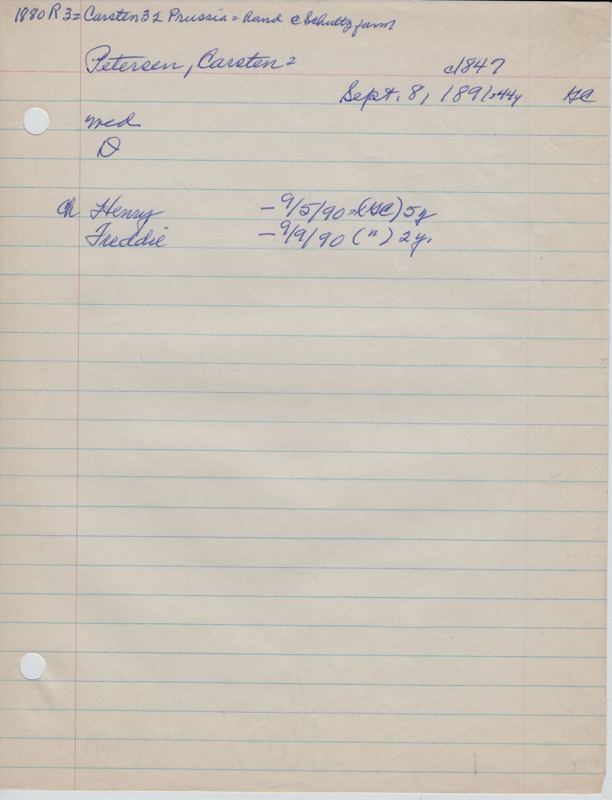 1880 R 3 = Carsten 32 Prussia = hand c Schultz farm
Petersen, Carsten 2 c1847
Sept. 8, 1891 =44y GC
med
D
Ch Henry - 9/5/90 = (GC) 5y
Freddie - 9/9/90 (") 2y.